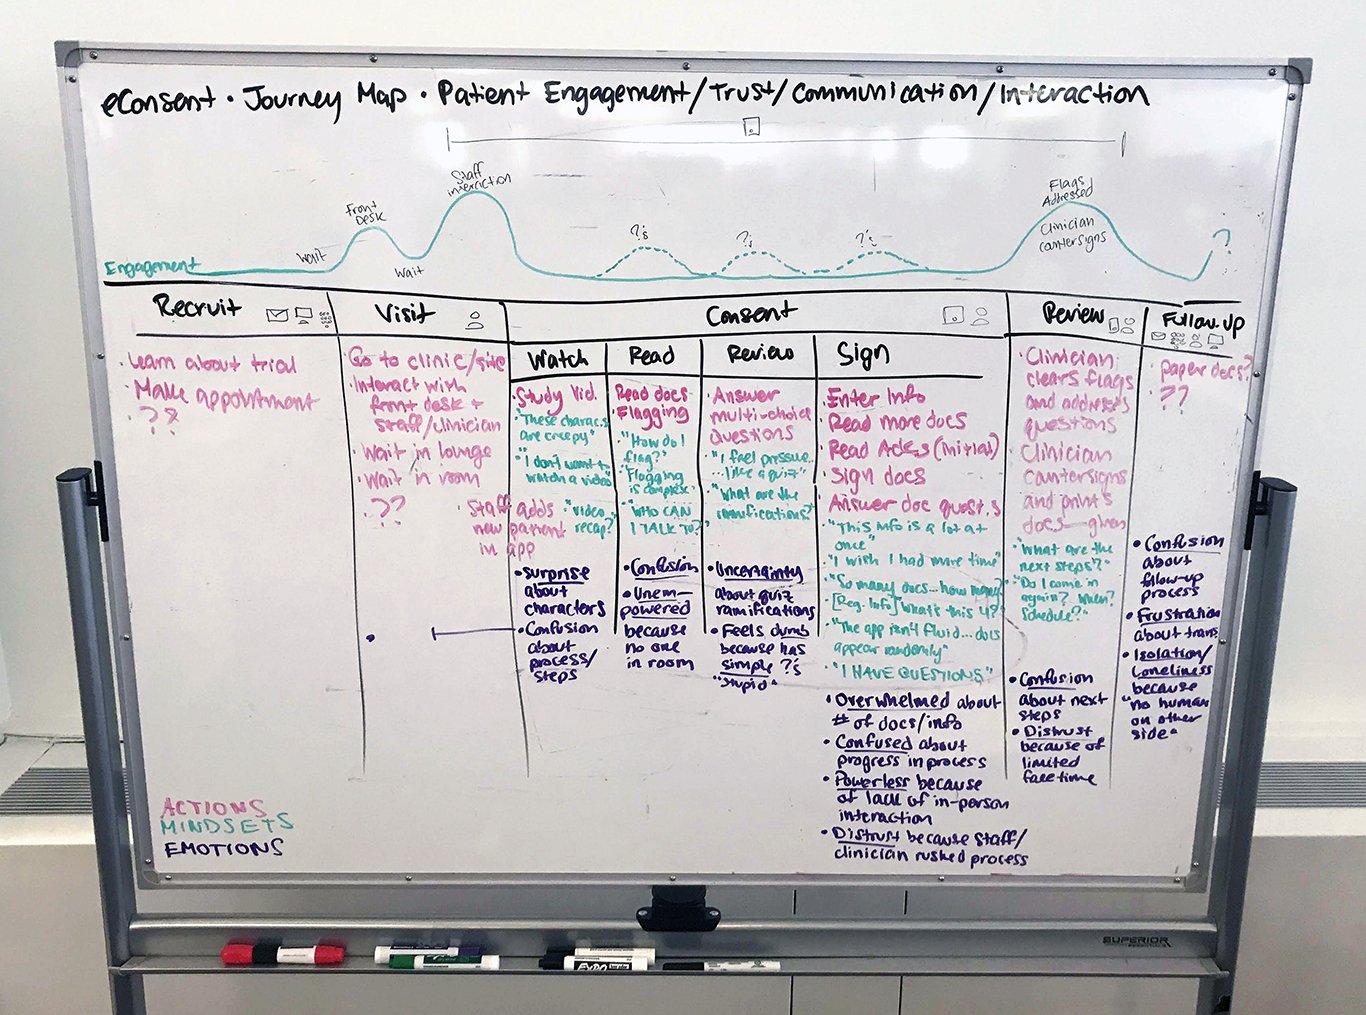 eConsent · Journey Map · Patient Engagement/Trust/Communication/Interaction
Staff
interaction
Front
Desk
Wait
Wait
?'s
?'s
?'s
Flags
Addressed
Clinician
countersigns
?
Engagement
Recruit
· Learn about trial
· Make appointment
· ??
Visit
· Go to clinic/site
· Interact with
front desk +
staff/clinician
· Wait in lounge
· Wait in room
· ??
Staff adds
new patient
in app
Consent
Watch
· Study Vid.
· "These characs.
are creepy"
· "I don't want to
watch a video"
"video
recap?"
· Surprise
about
characters
· Confusion
about
process/
steps
Read
Read docs
· Flagging
· "How do I
flag?"
· "Flagging
is complex"
· "WHO CAN
I TALK TO?"
· Confusion
· Unem-
powered
because
no one
in room
Review
· Answer
multi-choice
questions
· "I feel pressure
...like a quiz"
· "What are the
ramifications?"
· Uncertainty
about quiz
ramifications
· Feels dumb
because has
simple ?'s
"stupid"
Sign
· Enter Info
· Read more docs
· Read Addcs (initial)
· Sign docs
· Answer doc quest.s
· "This info is a lot at
once"
· "I wish I had more time"
· "So many docs...how many?"
· [Reg. Info] "What's this 4?"
· "The app isn't fluid...docs
appear randomly"
· "I HAVE QUESTIONS"
· Overwhelmed about
# of docs/info
· Confused about
progress in process
· Powerless because
of lack of in-person
interaction
· Distrust because staff/
clinician rushed process
Review
· Clinician
clears flags
and addresses
questions
· Clinician
countersigns
and prints
docs—given
· "What are the
next steps?"
· "Do I come in
again? When?
Schedule?"
· Confusion
about next
steps
· Distrust
because of
limited
face time
Follow-up
· Paper docs?
· ??
· Confusion
about
follow-up
process
· Frustration
about trans.
· Isolation/
Loneliness
because
"no human
on other
side"
ACTIONS
MINDSETS
EMOTIONS
SUPERIOR
EXPO